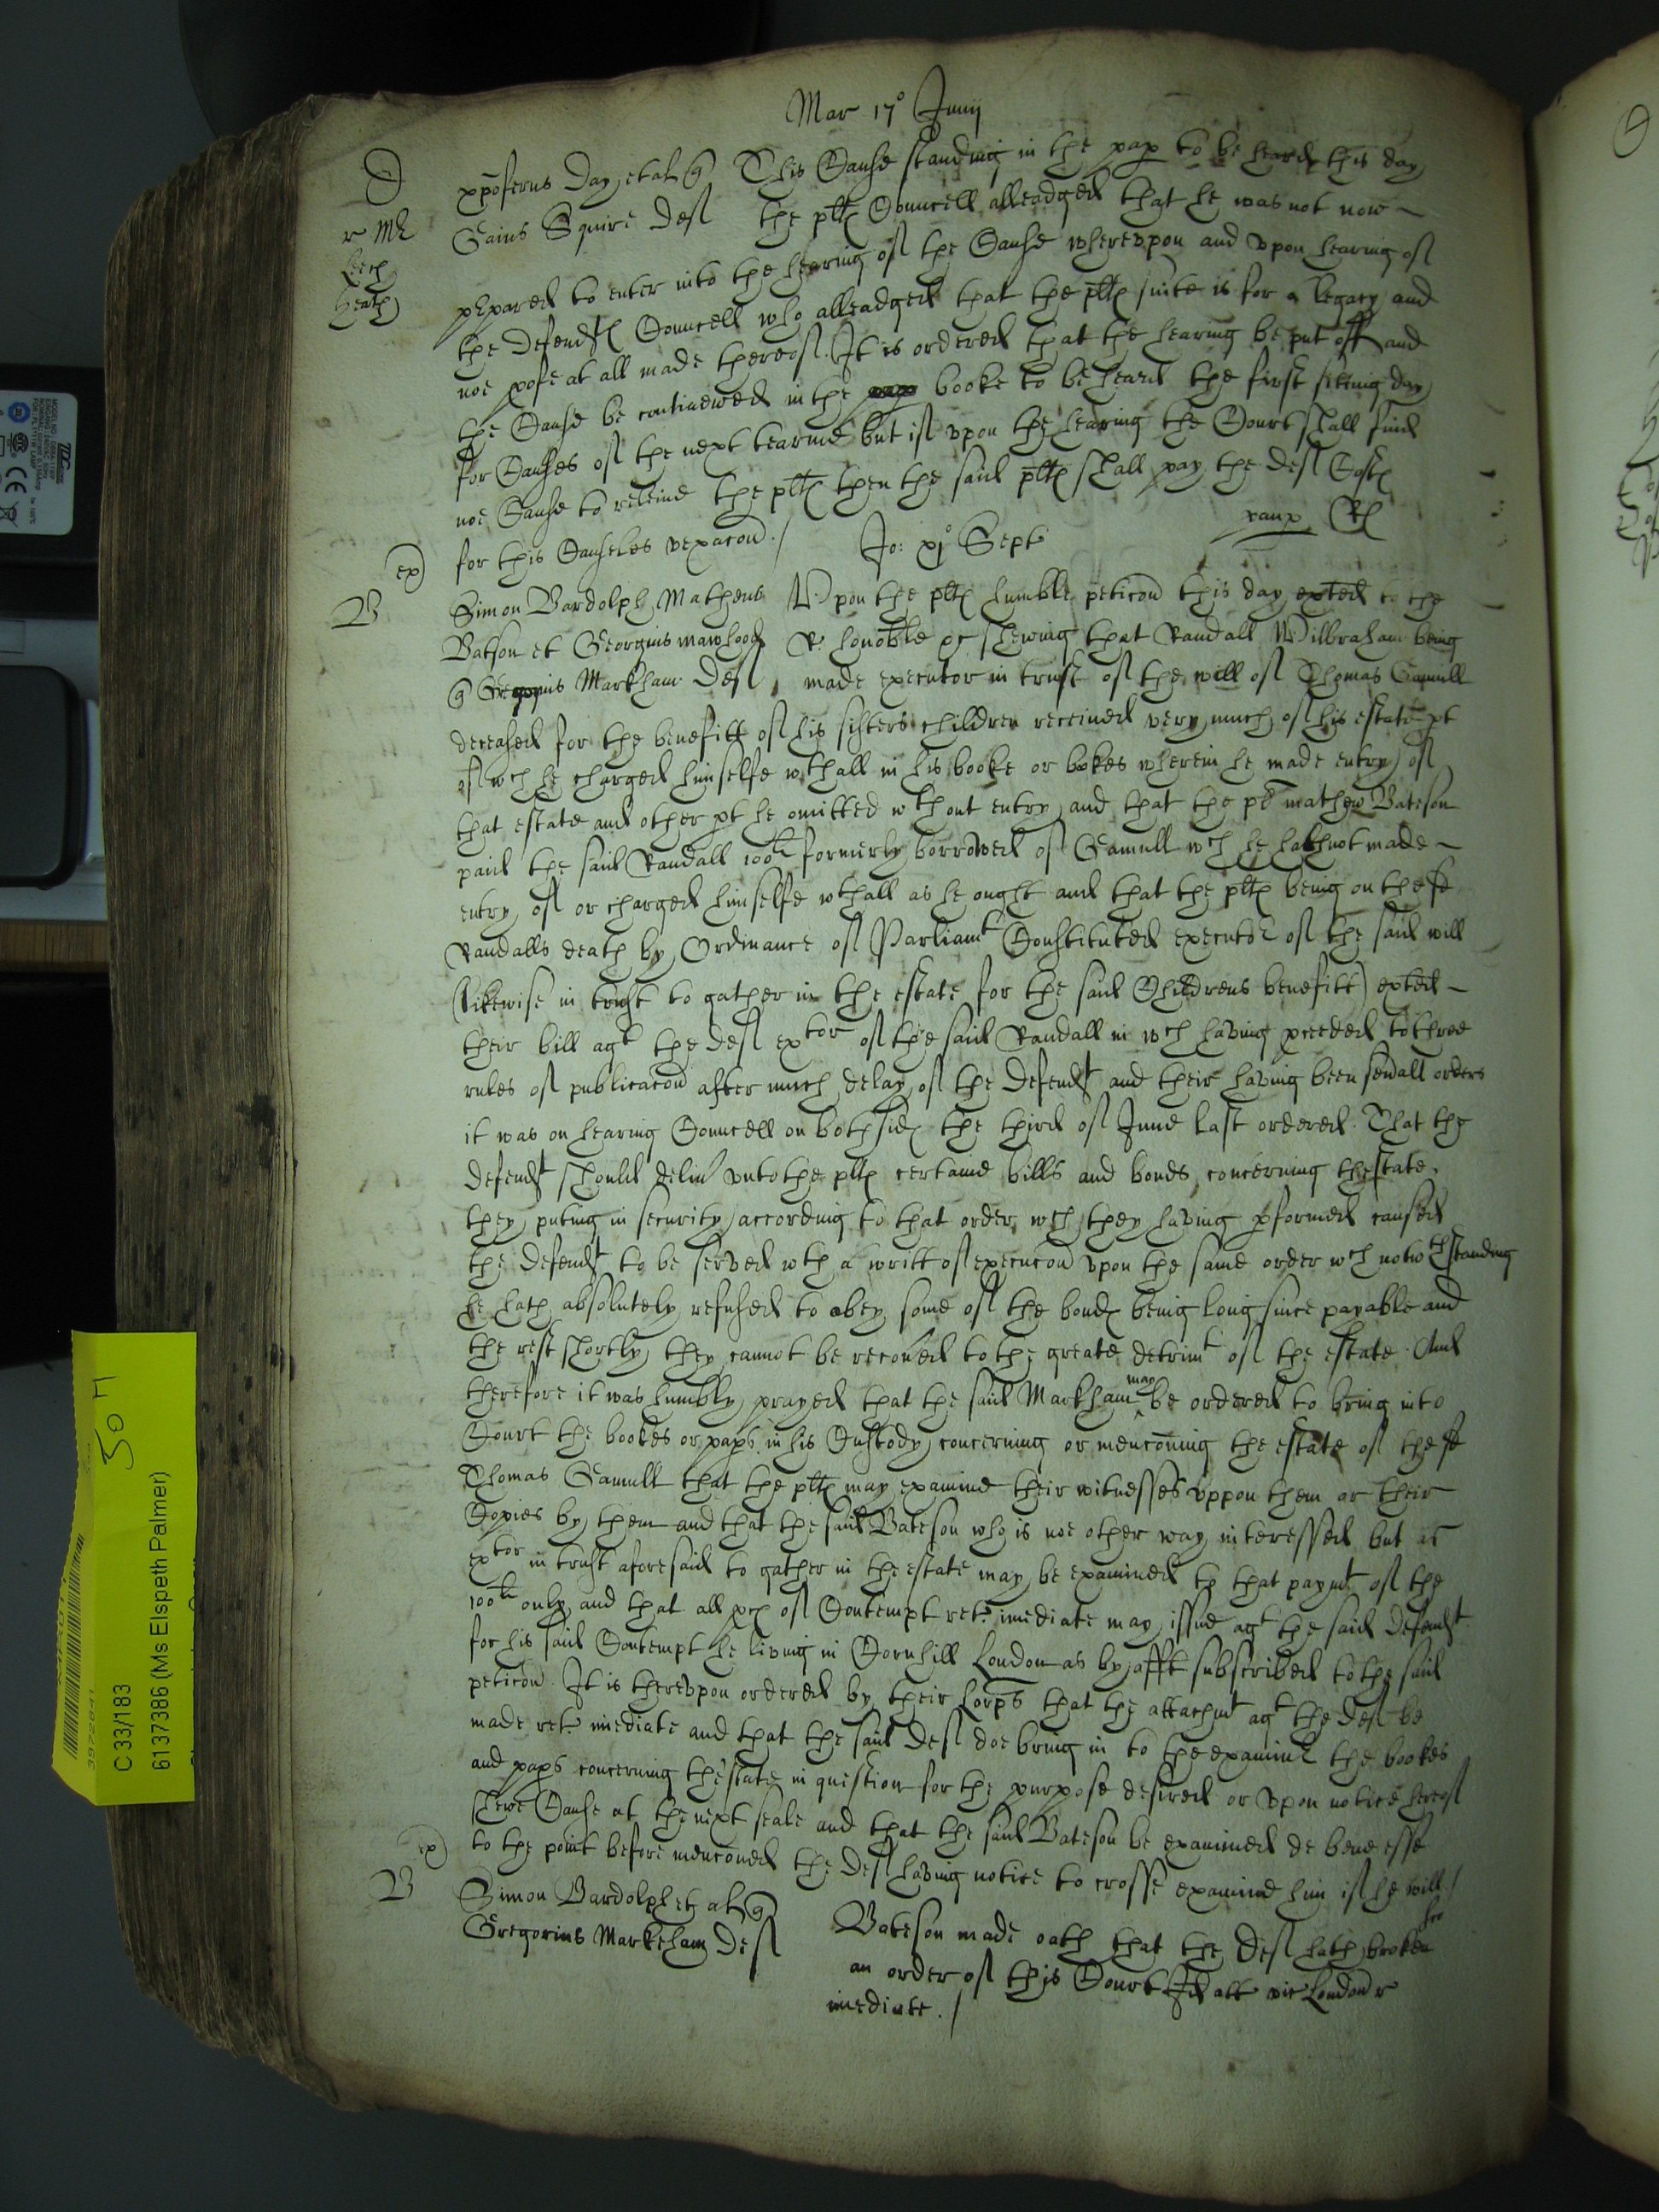 Mar 17° Junij
D
xpoferus Day et al q This Cause standing in the pap to be heard this day
r Mr
Gaius Squire Deft the pltes Councell alleadged that he was not now
Leech
prepared to enter into the hearing of the Cause wherevpon and vpon hearing of
Heath
the defendtes Councell who alleadged that the pltes suite is for a legacy and
noe profe at all made thereof. It is ordered that the hearing be put off and
the Cause be continewed in the booke to be heard the first sitting day
for Causes of the next tearme but if vpon the hearing the Court shall find
noe Cause to releive the pltes then the said pltes shall pay the deft Costes
for this Causeles vexacon./
Jo: xj° Sept
ex)
B
Simon Bardolph, Matheus Vpon the pltes humble peticon this day exted to the
Batson et Georgius manhood Rt honoble pr shewing that Randall Wilbraham being
q Gregorius Markham Deft, made executor in trust of the will of Thomas Gamull
deceased for the benefitt of his sisters children received very much of his estate pt
of wch he charged himselfe wthall in his booke or bookes wherein he made entry of
that estate and other pt he omitted wthout entry, and that the plt mathew Bateson
paid the said Randall 100l formerly borrowed of Gamull wch he hath not made
entry of or charged himselfe wthall as he ought and that the pltes being on the sd
Randalls death by Ordinance of Parliamt Constituted executor of the said will
(likewise in trust to gather in the estate for the said Childrens benefitt) exted
their bill agt the deft extor of the said Randall in wch having preeeded to three
rules of publicacon after much delay of the defendt and their having been seuall orders
it was on hearing Councell on both sides the third of June last ordered. That the
defendt should deliv vnto the pltes certaine bills and bonds concerning thestate.
they puting in security according to that order wch they having pformed caused
the defendt to be served wth a writt of execucon vpon the same order wch notwthstanding
he hath absolutely refused to obey some of the bondes being long since payable and
the rest shortly they cannot be recoved to the greate detrimt of the estate. And
may
therefore it was humbly prayed that the said Markham ^ be ordered to bring into
Court the bookes or paps in his Custody concerning or menconing the estate of the sd
Thomas Gamull that the pltes may examine their witnesses vppon them or their
Copies by them and that the said Bateson who is noe other way interessed but as
extor in trust aforesaid to gather in the estate may be examined to that paymt of the
100l only and that all pces of Contempt ret. imediate may issue agt the said defendt
for his said Contempt he living in Cornhill London as by afft subscribed to the said
peticon. It is therevpon ordered by their Lorps that the attachmt agt the deft be
made ret. imediate and that the said deft doe bring in to the examinr the bookes
and paps concerning th'estate in question for the purpose desired or vpon notice hereof
shewe Cause at the next seale and that the said Bateson be examined de bene esse
to the point before menconed the deft having notice to crosse examine him if he will./
ex)
B
Simon Bardolph et al q Bateson made oath that the deft hath broken
Gregorius Markeham Deft an order of this Court Id att vic London r
imediate./
C 33/183
6137386 (Ms Elspeth Palmer)